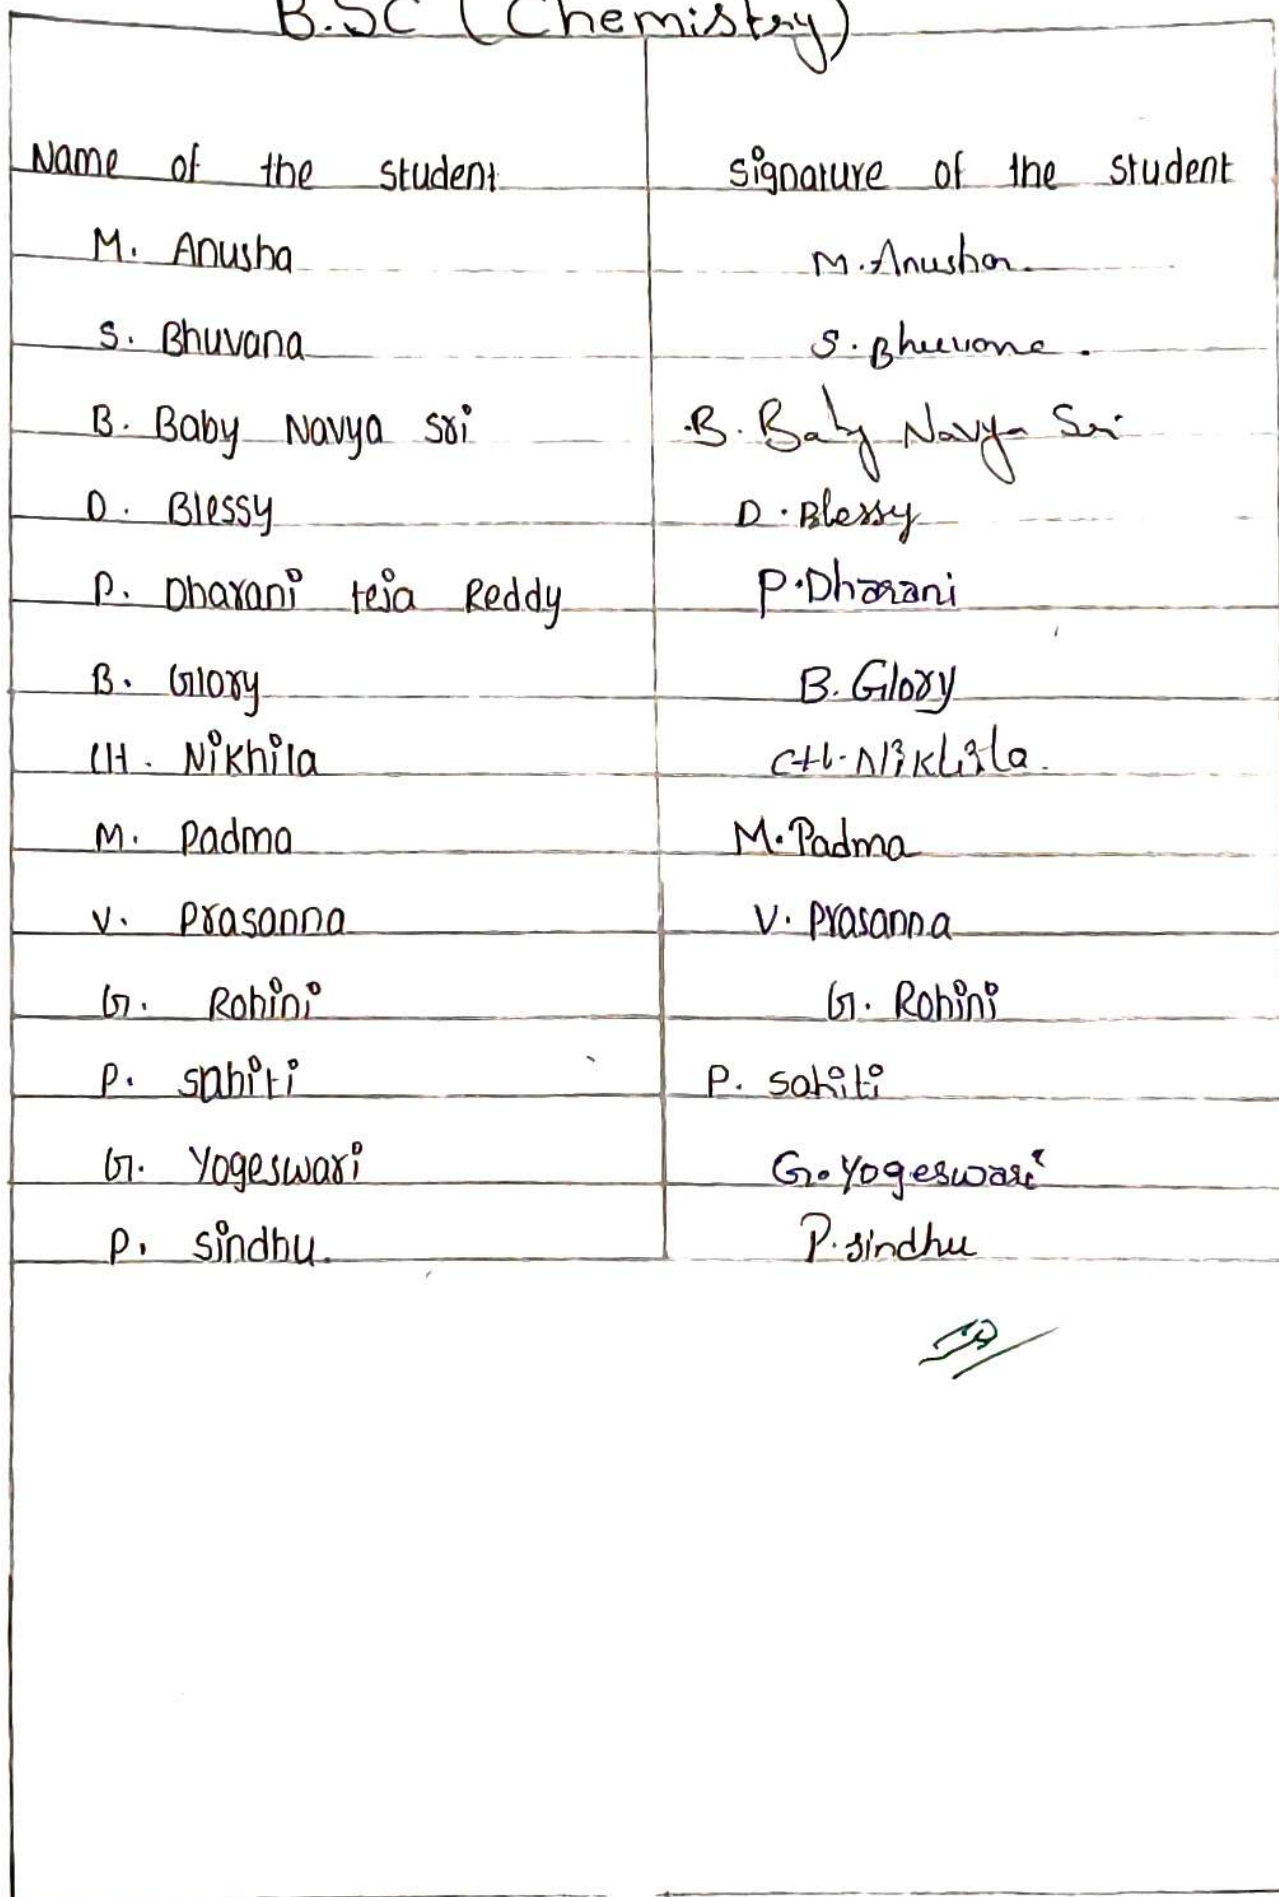 B.SC (Chemistry)
Name of the student signature of the student
M. Anusha M. Anusha
S. Bhuvana S. Bhuvana.
B. Baby Navya sri B. Baby Navya Sri
D. Blessy D. Blessy
P. Dharani teja Reddy P. Dharani
B. Glory B. Glory
CH. Nikhila CH. Nikhila.
M. Padma M. Padma
V. Prasanna V. Prasanna
G. Rohini G. Rohini
P. sahiti P. sahiti
G. Yogeswari G. Yogeswari
P. sindhu. P. sindhu